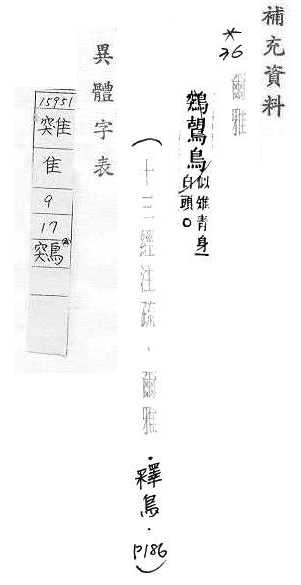 補充資料
*36 爾雅
鶟鶦鳥 似雉青身
白頭。
(十三經注疏．爾雅．釋鳥．P186)
異體字表
15951
隹
9
17
鶟